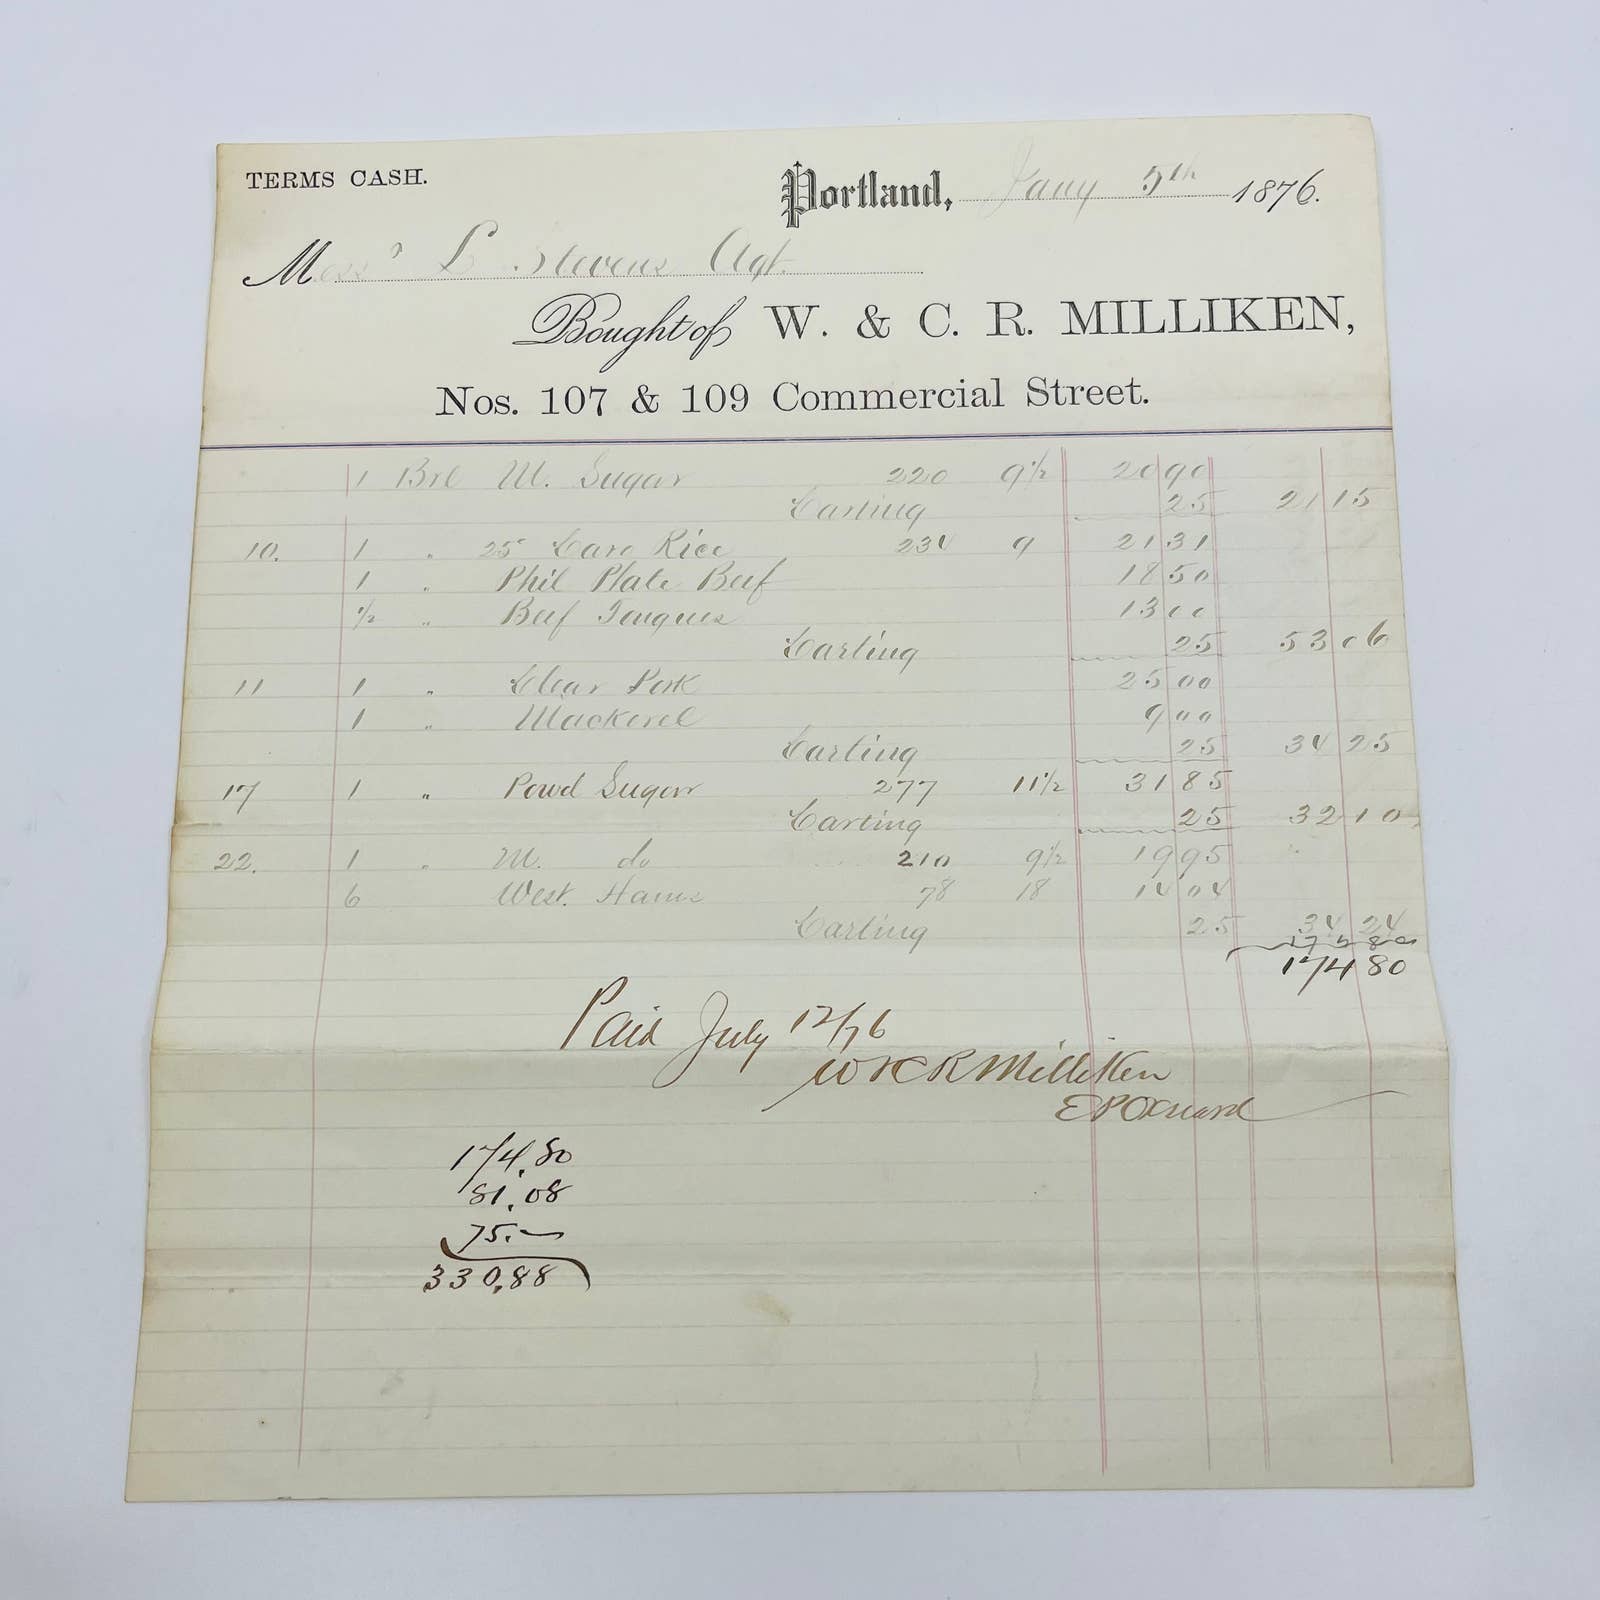 TERMS CASH.
Portland, Jany 5th 1876.
Mess rs L Stevens Agt.
Bought of W. & C. R. MILLIKEN,
Nos. 107 & 109 Commercial Street.
1 Brl M. Sugar 220 9½ 20 90
Carting 25 21 15
10. 1 " 25 Caro Rice 234 9 21 31
1 " Phil Plate Beef 18 50
½ " Beef Tongues 13 00
Carting 25 53 06
11 1 " Clear Pork 25 00
1 " Mackerel 9 00
Carting 25 34 25
17 1 " Powd Sugar 277 11½ 31 85
Carting 25 32 10
22. 1 " M. do 210 9½ 19 95
6 West. Hams 78 18 14 04
Carting 25 34 24
174 80
Paid July 12/76
W & C R Milliken
E P Oxnard
174.80
81.08
75.—
330.88